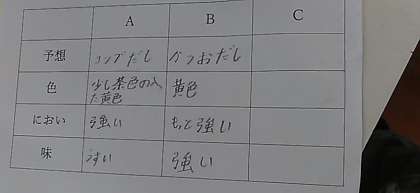 A B C
予想 コンブだし カツおだし
色 少し茶色の入った黄色 黄色
におい 強い もっと強い
味 うすい 強い